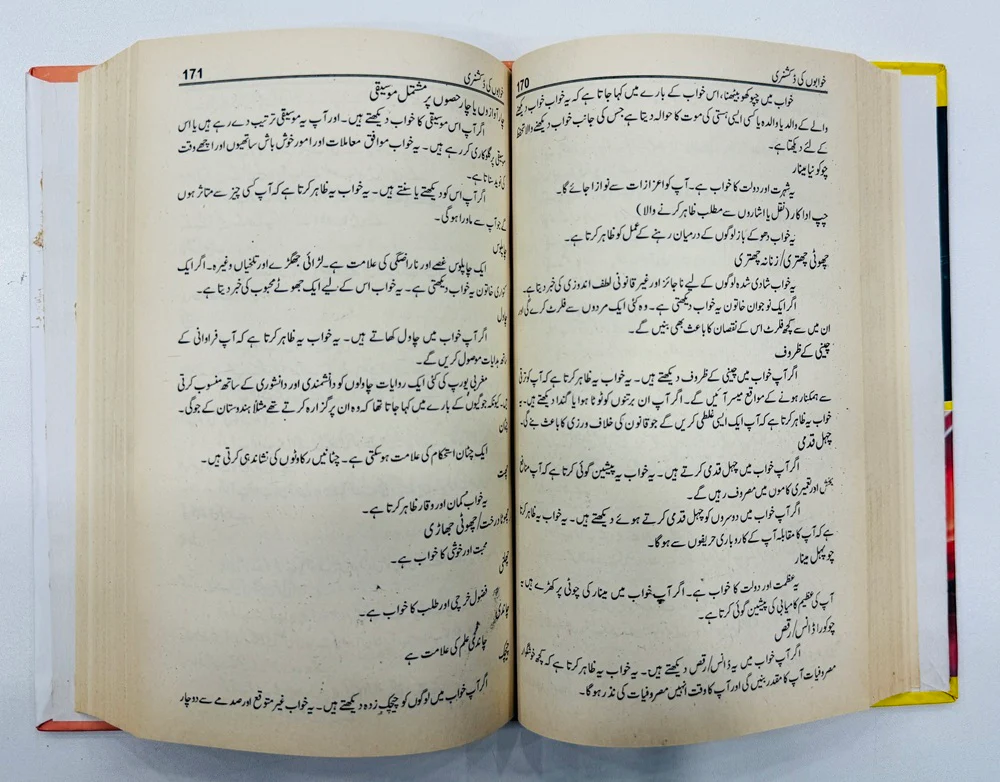 170 خوابوں کی ڈکشنری
خواب میں چپو کھو بیٹھنا، اس خواب کے بارے میں کہا جاتا ہے کہ یہ خواب خواب دیکھنے
والے کے والد یا والدہ یا کسی ایسی ہستی کی موت کا حوالہ دیتا ہے جس کی جانب خواب دیکھنے والا تحفظ
کے لئے دیکھتا ہے۔
چوکونیا مینار
یہ شہرت اور دولت کا خواب ہے۔ آپ کو اعزازات سے نوازا جائے گا۔
چپ اداکار (نقل یا اشاروں سے مطلب ظاہر کرنے والا)
یہ خواب دھوکے باز لوگوں کے درمیان رہنے کے عمل کو ظاہر کرتا ہے۔
چھوٹی چھتری/زنانہ چھتری
یہ خواب شادی شدہ لوگوں کے لیے ناجائز اور غیر قانونی لطف اندوزی کی خبر دیتا ہے۔
اگر ایک نوجوان خاتون یہ خواب دیکھتی ہے۔ وہ کئی ایک مردوں سے فلرٹ کرے گی اور
ان میں سے کچھ فلرٹ اس کے نقصان کا باعث بھی بنیں گے۔
چینی کے ظروف
اگر آپ خواب میں چینی کے ظروف دیکھتے ہیں۔ یہ خواب یہ ظاہر کرتا ہے کہ آپ کو ترقی
سے ہمکنار ہونے کے مواقع میسر آئیں گے۔ اگر آپ ان برتنوں کو ٹوٹا ہوا یا گندا دیکھتے ہیں۔ یہ
خواب یہ ظاہر کرتا ہے کہ آپ ایک ایسی غلطی کریں گے جو قانون کی خلاف ورزی کا باعث بنے گی۔
چہل قدمی
اگر آپ خواب میں چہل قدمی کرتے ہیں۔ یہ خواب یہ پیشین گوئی کرتا ہے کہ آپ منافع
بخش اور تعمیری کاموں میں مصروف رہیں گے۔
اگر آپ خواب میں دوسروں کو چہل قدمی کرتے ہوئے دیکھتے ہیں۔ یہ خواب یہ ظاہر کرتا
ہے کہ آپ کا مقابلہ آپ کے کاروباری حریفوں سے ہوگا۔
چوپہل مینار
یہ عظمت اور دولت کا خواب ہے۔ اگر آپ خواب میں مینار کی چوٹی پر کھڑے ہیں۔ یہ
آپ کی عظیم کامیابی کی پیشین گوئی کرتا ہے۔
چوکور اڈانس/رقص
اگر آپ خواب میں یہ ڈانس/رقص دیکھتے ہیں۔ یہ خواب یہ ظاہر کرتا ہے کہ کچھ خوشگوار
مصروفیات آپ کا مقدر بنیں گی اور آپ کا وقت انہیں مصروفیات کی نذر ہوگا۔
171 خوابوں کی ڈکشنری
چار آوازوں یا چار حصوں پر مشتمل موسیقی
اگر آپ اس موسیقی کا خواب دیکھتے ہیں۔ اور آپ یہ موسیقی ترتیب دے رہے ہیں یا اس
موسیقی پر گلوکاری کر رہے ہیں۔ یہ خواب موافق معاملات و امور خوش باش ساتھیوں اور اچھے وقت
کی نوید سناتا ہے۔
اگر آپ اس کو دیکھتے یا سنتے ہیں۔ یہ خواب یہ ظاہر کرتا ہے کہ آپ کسی چیز سے متاثر ہوں
گے جو آپ سے ماورا ہوگی۔
چاپلوس
ایک چاپلوس غصے اور ناراضگی کی علامت ہے۔ لڑائی جھگڑے اور تلخیاں وغیرہ۔ اگر ایک
کنواری خاتون یہ خواب دیکھتی ہے۔ یہ خواب اس کے لیے ایک جھوٹے محبوب کی خبر دیتا ہے۔
چاول
اگر آپ خواب میں چاول کھاتے ہیں۔ یہ خواب یہ ظاہر کرتا ہے کہ آپ فراوانی کے
ساتھ ہدایات موصول کریں گے۔
مغربی یورپ کی کئی ایک روایات چاولوں کو دانشمندی اور دانشوری کے ساتھ منسوب کرتی
ہیں۔ کیونکہ جوگیوں کے بارے میں کہا جاتا تھا کہ وہ ان پر گزارہ کرتے تھے مثلاً ہندوستان کے جوگی۔
چٹان
ایک چٹان استحکام کی علامت ہو سکتی ہے۔ چٹانیں رکاوٹوں کی نشاندہی کرتی ہیں۔
چھت
یہ خواب کمان اور وقار ظاہر کرتا ہے۔
چھوٹا درخت/چھوٹی جھاڑی
محبت اور خوشی کا خواب ہے۔
چھلنی
فضول خرچی اور طلب کا خواب ہے۔
چاندی
چاندی علم کی علامت ہے
چیچک
اگر آپ خواب میں لوگوں کو چیچک زدہ دیکھتے ہیں۔ یہ خواب غیر متوقع اور صدمے سے دوچار